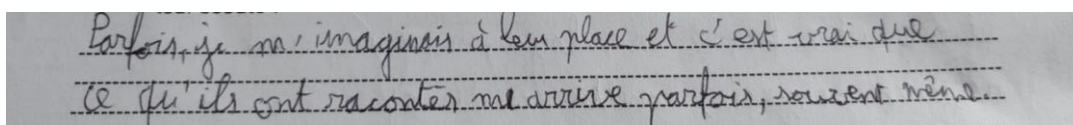 Parfois, je m'imaginais à leur place et c'est vrai que
ce qu'ils ont racontés me arrive parfois, souvent même.